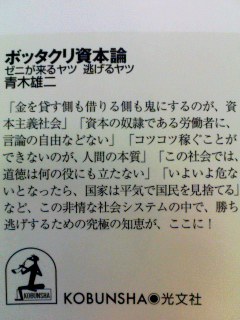 ボッタクリ資本論
ゼニが来るヤツ 逃げるヤツ
青木雄二
「金を貸す側も借りる側も鬼にするのが、資
本主義社会」「資本の奴隷である労働者に、
言論の自由などない」「コツコツ稼ぐことが
できないのが、人間の本質」「この社会では、
道徳は何の役にも立たない」「いよいよ危な
いとなったら、国家は平気で国民を見捨てる」
など、この非情な社会システムの中で、勝ち
逃げするための究極の知恵が、ここに！
KOBUNSHA
KOBUNSHA◉光文社